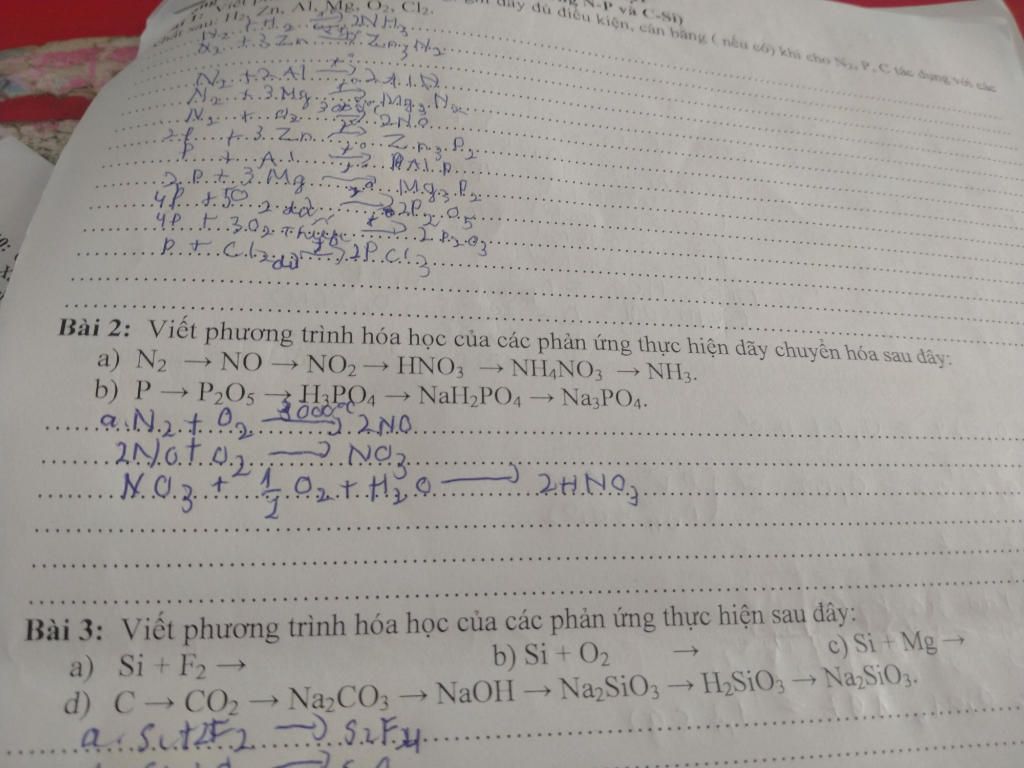 N-P và C-Si)
đầy đủ điều kiện, cân bằng ( nếu có) khi cho N₂, P, C tác dụng với các
chất sau: H₂, Zn, Al, Mg, O₂, Cl₂.
N₂ + H₂ → 2NH₃
N₂ + 3Zn → Zn₃N₂
N₂ + 2Al → 2AlN
N₂ + 3Mg → Mg₃N₂
N₂ + O₂ → 2NO
2P + 3Zn → Zn₃P₂
P + Al → AlP
2P + 3Mg → Mg₃P₂
4P + 5O₂ dd → 2P₂O₅
4P + 3O₂ → 2P₂O₃
P + Cl₂ → 2PCl₃
Bài 2: Viết phương trình hóa học của các phản ứng thực hiện dãy chuyển hóa sau đây:
a) N₂ → NO → NO₂ → HNO₃ → NH₄NO₃ → NH₃.
b) P → P₂O₅ → H₃PO₄ → NaH₂PO₄ → Na₃PO₄.
a. N₂ + O₂ 3000°C → 2NO
2NO + O₂ → NO₃
NO₃ + 1/2 O₂ + H₂O → 2HNO₃
Bài 3: Viết phương trình hóa học của các phản ứng thực hiện sau đây:
a) Si + F₂ → b) Si + O₂ → c) Si + Mg →
d) C → CO₂ → Na₂CO₃ → NaOH → Na₂SiO₃ → H₂SiO₃ → Na₂SiO₃.
a. Si + 2F₂ → SiF₄